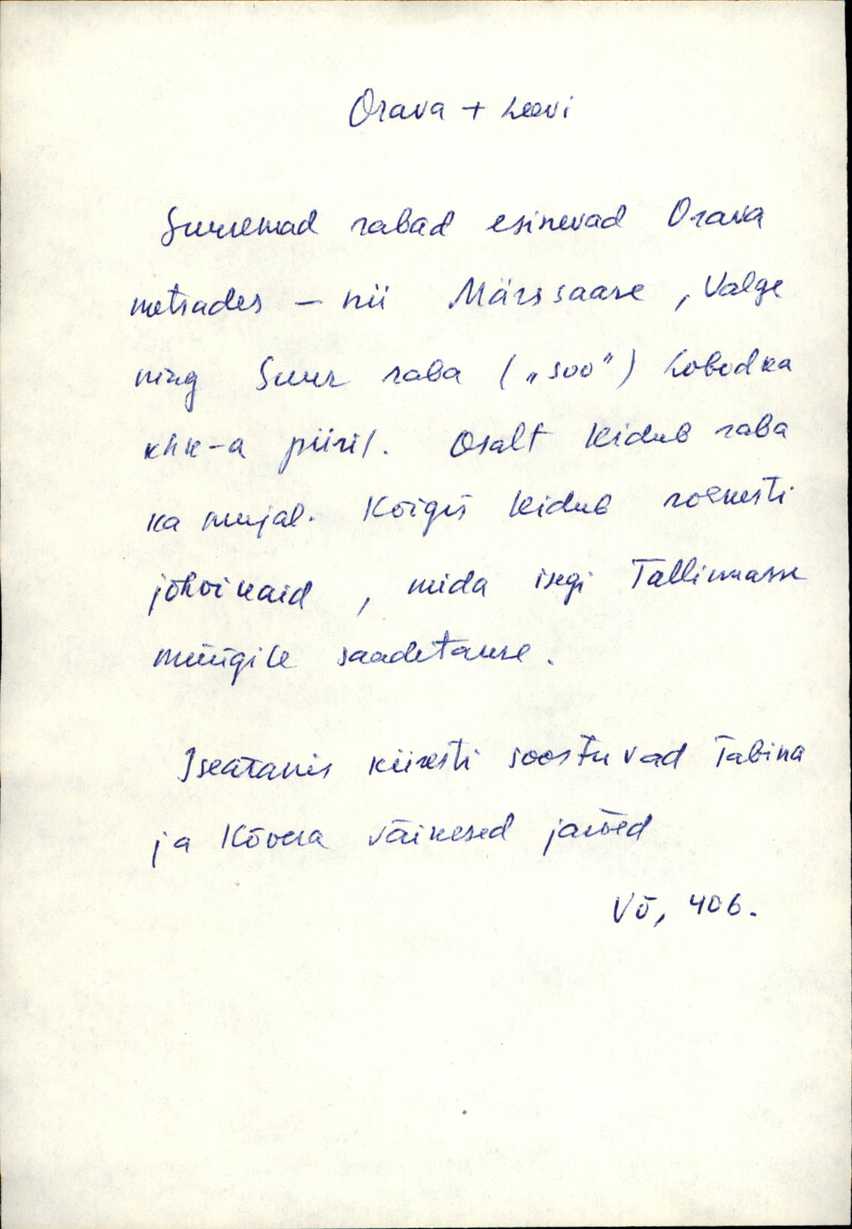 Orava + Leevi
Suuremad rabad esinevad Orava
metsades – nii Märssaare, Valge
ning Suur raba („soo") Lobodka
khk-a piiril. Osalt leidub raba
ka mujal. Kõigis leidub rohkesti
jõhvikaid, mida isegi Tallinnasse
müügile saadetakse.
Iseäranis kiiresti soostuvad Tabina
ja Kõvera väikesed järved
Võ, 406.